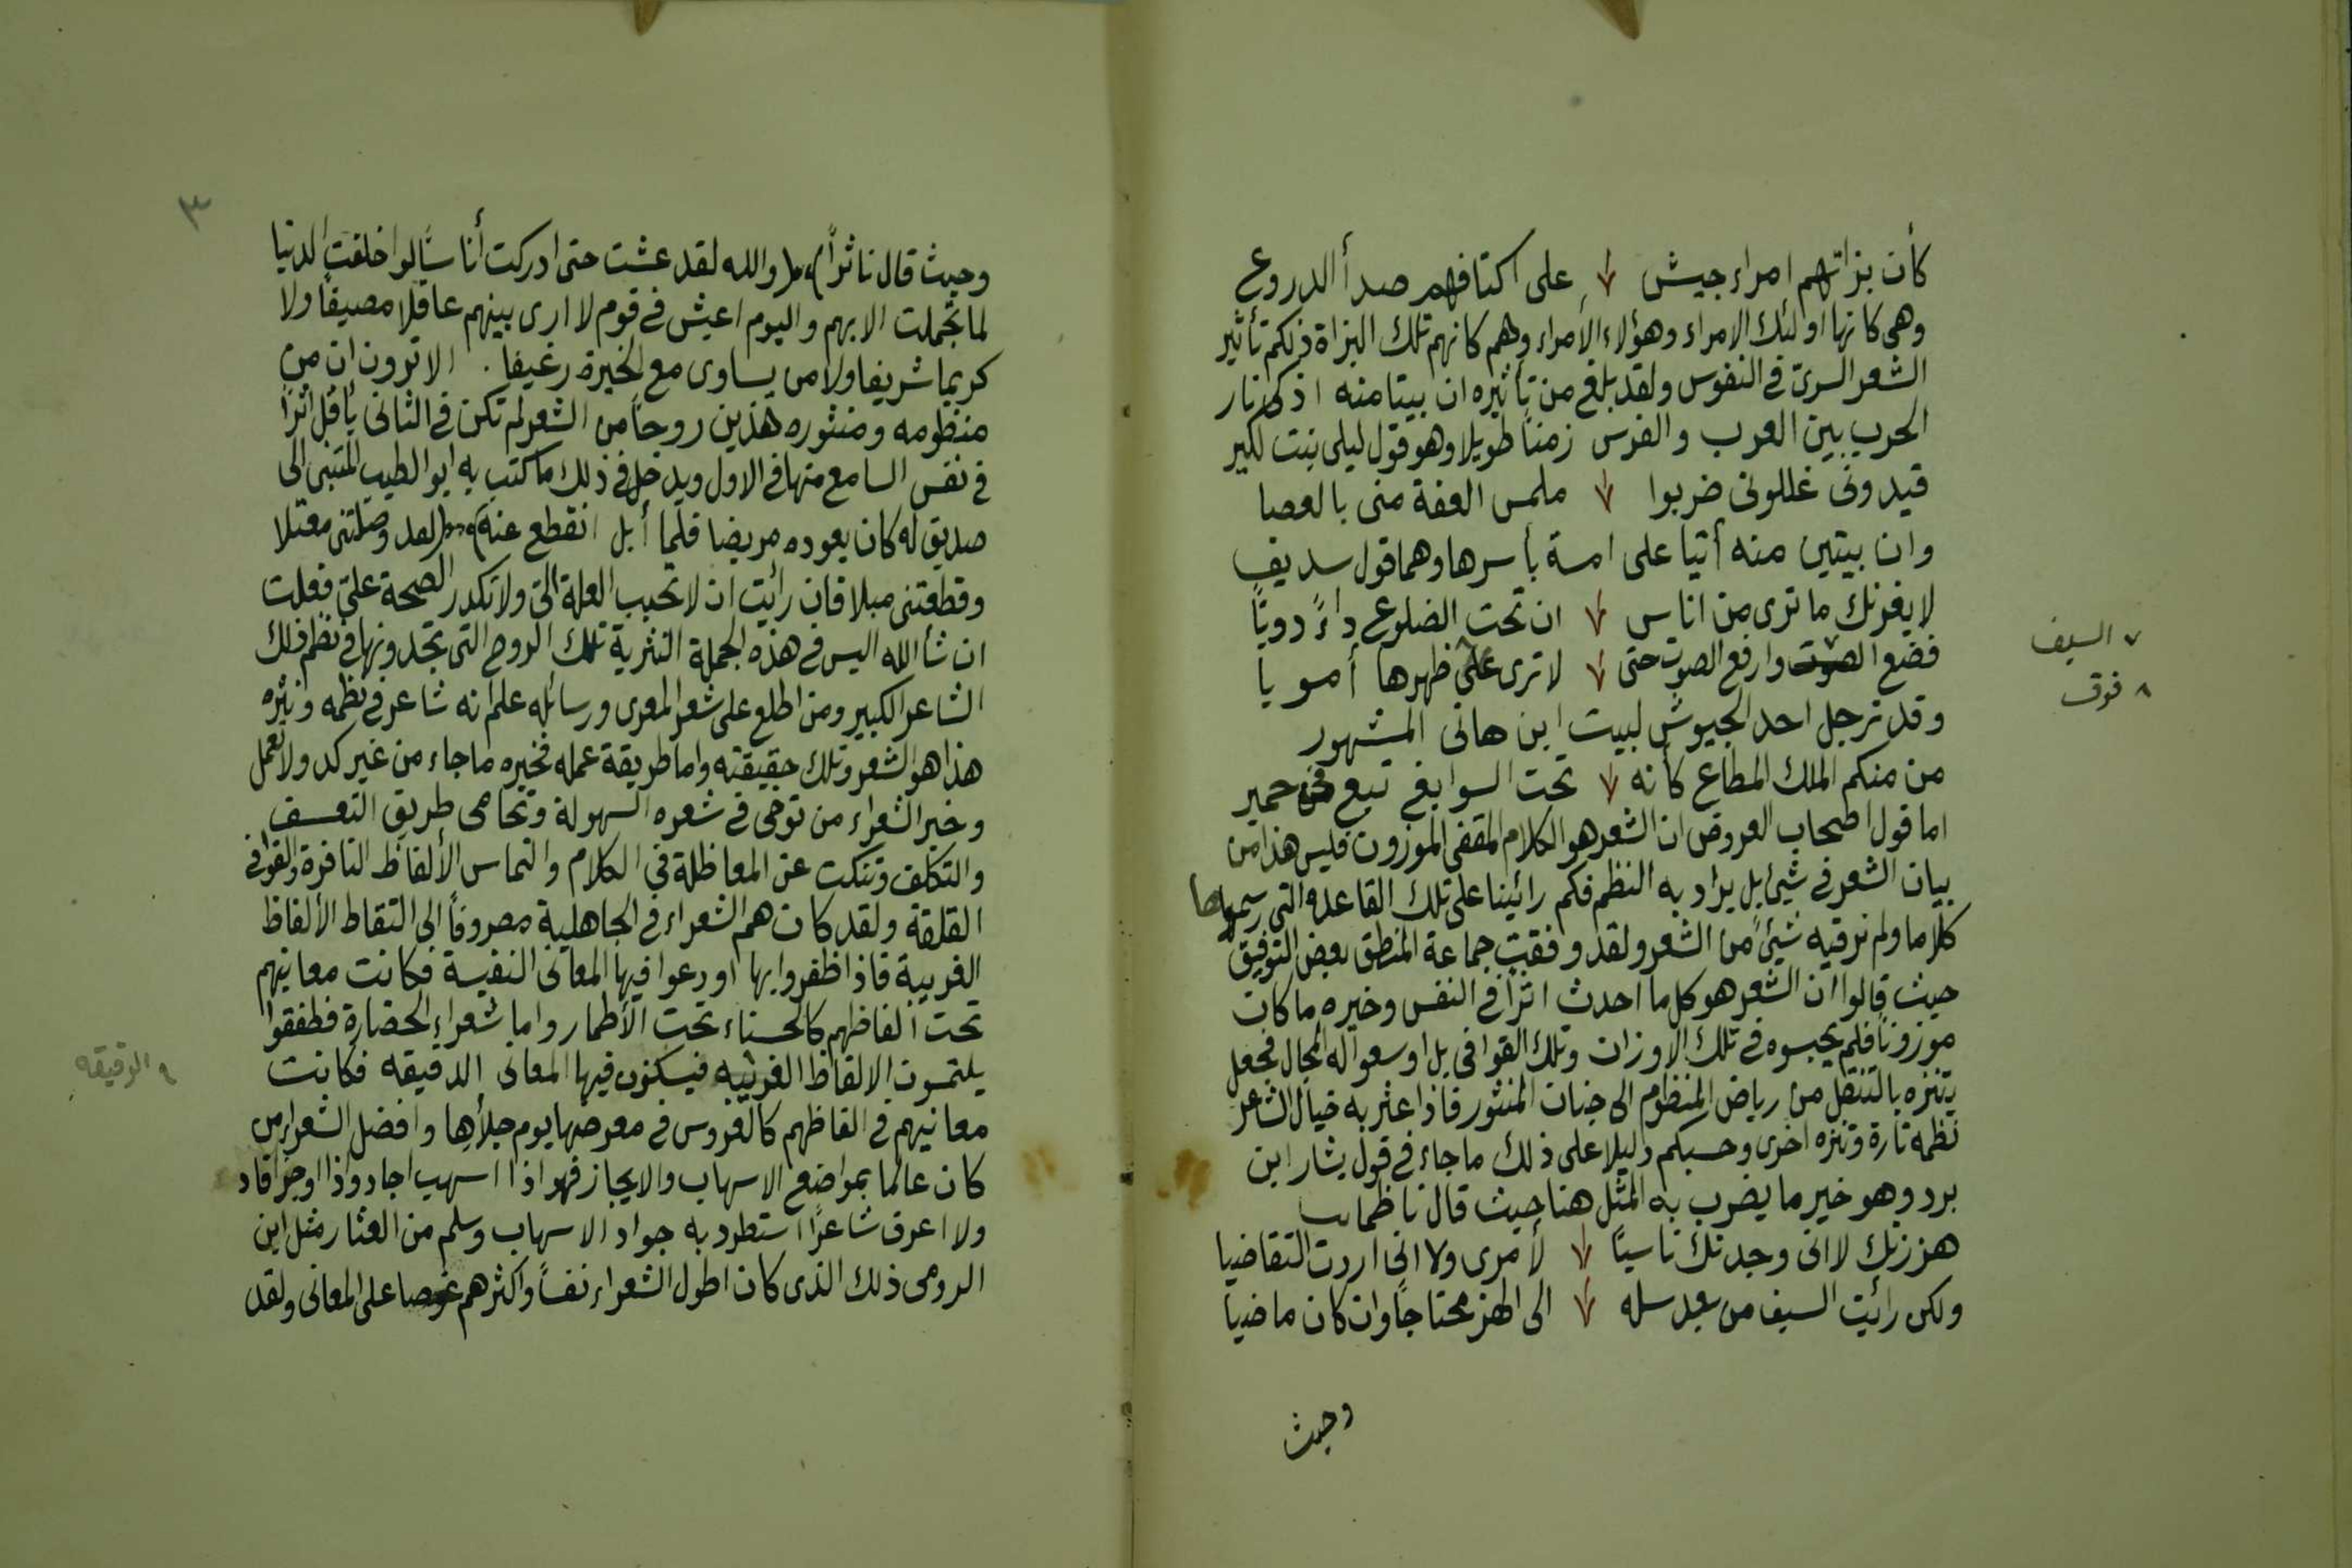 كأن بزاتهم امراء جيش على اكتافهم صدأ الدروع
وهى كانها اولئك الامراء وهؤلاء الأمراء وهم كانهم تلك البزاة ذلكم تأثير
الشعر السرىّ فى النفوس ولقد بلغ من تأثيره ان بيتا منه اذكى نار
الحرب بين العرب والفرس زمناً طويلا وهو قول ليلى بنت لكيز
قيدونى غللونى ضربوا ملمس العفة منى بالعصا
وان بيتين منه أتيا على امة بأسرها وهما قول سديف
لا يغرنك ما ترى من اناس ان تحت الضلوع داءً دويّاً
فضع الصوت وارفع الصوت حتى لا ترى على ظهرها أمويا
٧ السيف
٨ فوق
وقد ترجل احد الجيوش لبيت ابن هانى المشهور
من منكم الملك المطاع كأنه تحت السوابغ تبع فى حمير
اما قول اصحاب العروض ان الشعر هو الكلام المقفى الموزون فليس هذا من
بيان الشعر فى شيئ بل يراد به النظم فكم رائينا على تلك القاعدة التى رسموها
كلاما ولم نر فيه شيئً من الشعر ولقد وفقت جماعة المنطق بعض التوفيق
حيث قالوا ان الشعر هو كل ما احدث اثراً فى النفس وخيره ما كان
موزوناً فلم يحبسوه فى تلك الاوزان وتلك القوافى بل اوسعوا له المجال فجعل
يتنزه بالتنقل من رياض المنظوم الى جنات المنثور فاذا عثر به خيال الشاعر
نظمه تارة ونثره اخرى وحسبكم دليلا على ذلك ما جاء فى قول بشار ابن
برد وهو خير ما يضرب به المثل هنا حيث قال ناظما
هززتك لا انى وجدتك ناسيًا لأمرى ولا انى اردت التقاضيا
ولكن رائيت السيف من بعد سله الى الهز محتاجاً وان كان ماضيا
وحيث
٣
وحيث قال ناثراً والله لقد عشت حتى ادركت أناسًا لو اخلقت الدنيا
لما تجملت الا بهم واليوم اعيش فى قوم لا ارى بينهم عاقلا مصيفاً ولا
كريما شريفا ولا من يساوى مع الخبرة رغيفا . الا ترون ان من
منظومه ومنثوره هذين روحاً من الشعر لم تكن فى الثانى بأقل اثراً
فى نفس السامع منها فى الاول ويدخل فى ذلك ما كتب به ابو الطيب المتنبى الى
صديق له كان يعوده مريضا فلما أبل انقطع عنه لقد وصلتنى معتلا
وقطعتنى مبلا فان رائيت ان لا تحبب العلة الىّ ولا تكدر الصحة علىّ فعلت
ان شأ الله اليس فى هذه الجملة النثرية تلك الروح التى تجدونها فى نظم ذلك
الشاعر الكبير ومن اطلع على شعر المعرى ورسائله علم انه شاعر فى نظمه ونثره
هذا هو الشعر وتلك حقيقته واما طريقة عمله فخيره ما جاء من غير كد ولا تعمل
وخير الشعراء من توخى فى شعره السهولة وتحامى طريق التعسف
والتكلف وتنكب عن المعاظلة فى الكلام والتماس الألفاظ النافرة والقوافى
القلقة ولقد كان هم الشعراء فى الجاهلية مصروفاً الى التقاط الألفاظ
الغريبة فاذا ظفروا بها اودعوا فيها المعانى النفيسة فكانت معانيهم
تحت الفاظهم كالحسناء تحت الأطمار واما شعراء الحضارة فطفقوا
يلتمسون الالفاظ الغريبه فيسكنون فيها المعانى الدقيقه فكانت
٩ الرقيقه
معانيهم فى الفاظهم كالعروس فى معرضها يوم جلأها وافضل الشعراء من
كان عالما بمواضع الاسهاب والايجاز فهو اذا اسهب اجاد واذا اوجز افاد
ولا اعرف شاعرًا استطرد به جواد الاسهاب وسلم من العثار مثل ابن
الرومى ذلك الذى كان اطول الشعراء نفساً واكثرهم غوصا على المعانى ولقد